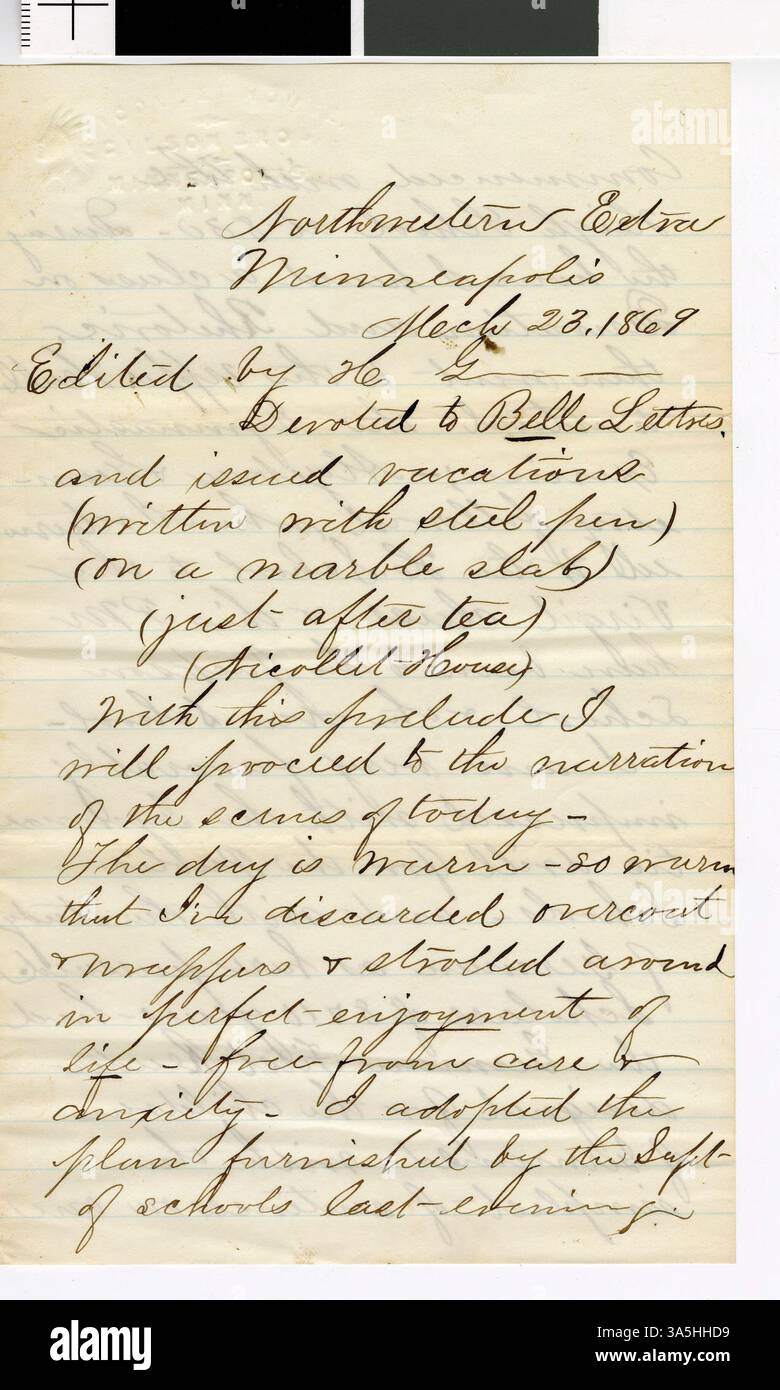 Northwestern Extra
Minneapolis
Mech 23. 1869
Edited by H G— —
Devoted to Belle Lettres.
and issued vacations
(written with steel pen)
(on a marble slab)
(just after tea)
(Nicollet House)
With this prelude I
will proceed to the narration
of the scenes of today —
The day is warm — so warm
that I've discarded overcoat
& wrappers & strolled around
in perfect enjoyment of
life — free from care &
anxiety — I adopted the
plan furnished by the Supt
of schools last evening.
alamy
Image ID: 3A5HHD9
www.alamy.com